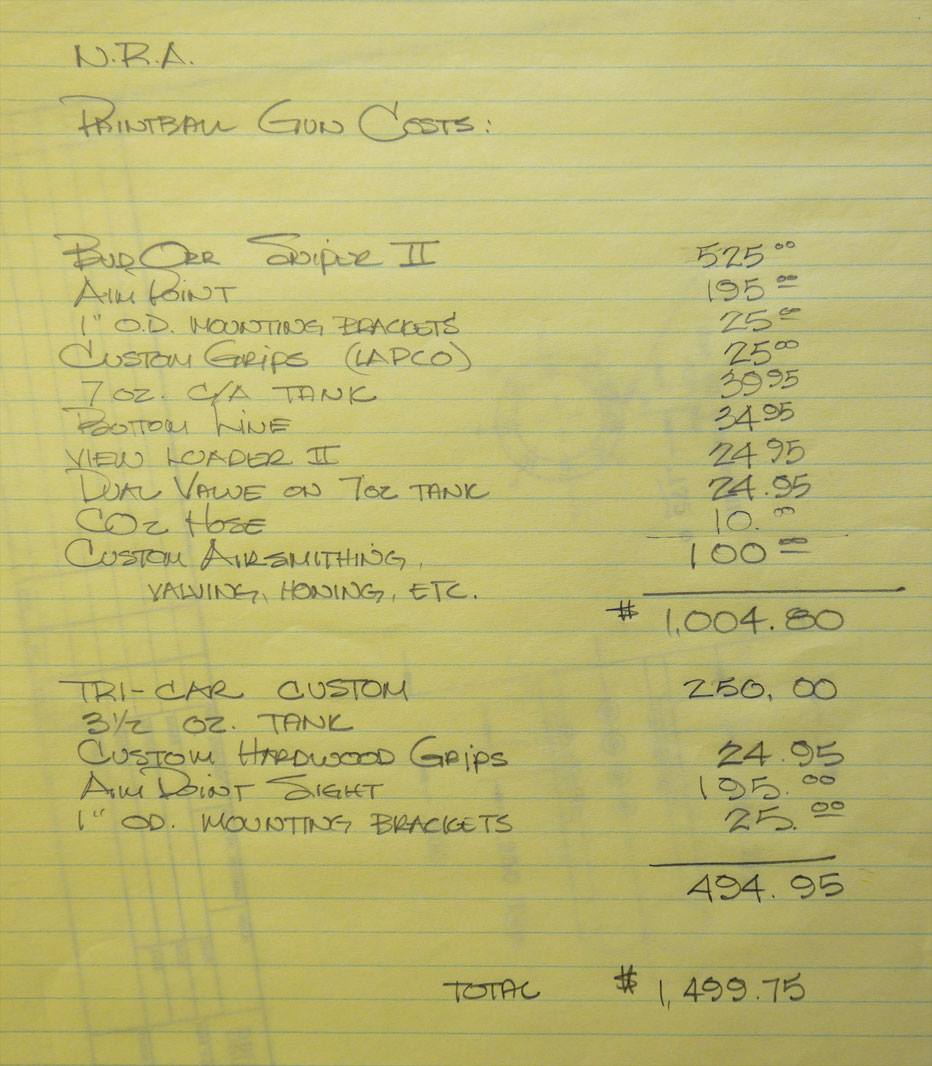 N.R.A.
PAINTBALL GUN COSTS:
BUD ORR SNIPER II 525 00
AIM POINT 195 00
1" O.D. MOUNTING BRACKETS 25 00
CUSTOM GRIPS (LAPCO) 25 00
7 OZ. C/A TANK 39 95
BOTTOM LINE 34 95
VIEW LOADER II 24 95
DUAL VALVE ON 7 OZ TANK 24.95
CO2 HOSE 10. 00
CUSTOM AIRSMITHING, 100 00
VALVING, HONING, ETC.
$ 1,004.80
TRI-CAR CUSTOM 250.00
3 1/2 OZ. TANK
CUSTOM HARDWOOD GRIPS 24.95
AIM POINT SIGHT 195. 00
1" OD. MOUNTING BRACKETS 25. 00
494.95
TOTAL $ 1,499.75